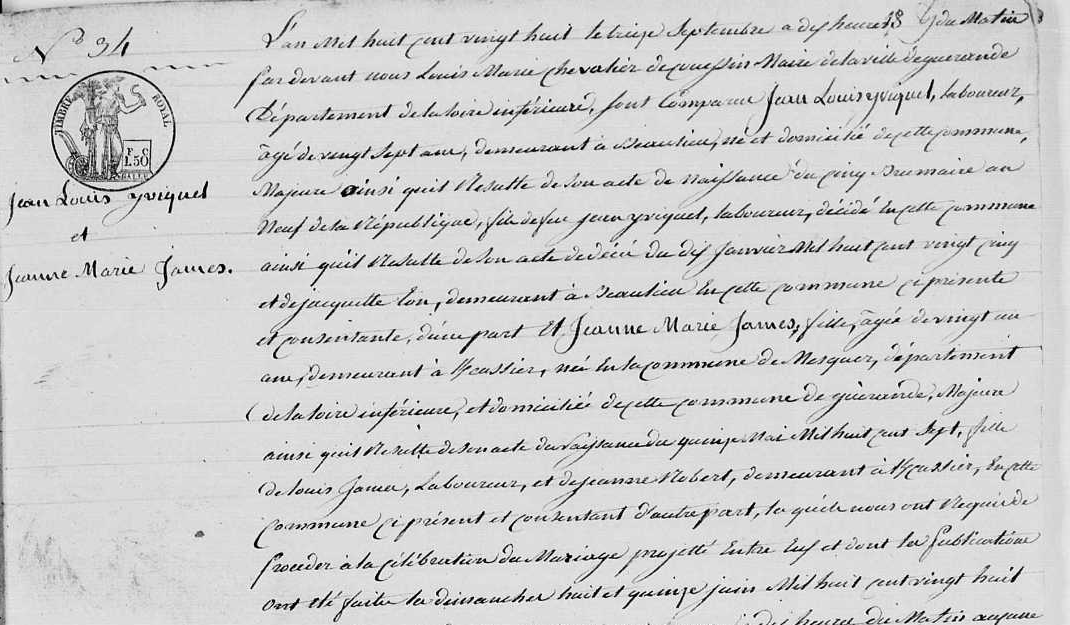 N° 34
TIMBRE ROYAL
F. C.
1.50
Jean Louis yviquel
et
Jeanne Marie James.
L'an Mil huit cent vingt huit le treize Septembre a dix heures du Matin
par devant nous Louis Marie chevalier de couessin Maire de la ville de guerande
Département de la loire inférieure, sont Comparu Jean Louis yviquel, laboureur,
âgé de vingt Sept ans, demeurant à Beaulieu, né et domicilié de cette commune,
Majeure ainsi quil Résulte de son acte de Naissance du cinq Brumaire an
Neuf de la République, fils de feu jean yviquel, laboureur, décédé En cette commune
ainsi quil Résulte de son acte de décé du dix Janvier Mil huit cent vingt cinq
et de jacquette demeurant à Beaulieu En cette commune ci présente
et consentante, d'une part Et Jeanne Marie James, fille, âgée de vingt un
ans, demeurant à née En la commune de Mesquer, département
de la loire inférieure, et domiciliée de cette commune de guérande, Majeure
ainsi quil Résulte de son acte de Naissance du quinze Mai Mil huit cent Sept, fille
de louis James, Laboureur, et de jeanne Robert, demeurant à En cette
commune ci présent et consentant d'autre part, les quels nous ont Requis de
proceder à la célébration du Mariage projetté Entre Eux et dont les publications
ont été faites les dimanches huit et quinze juin Mil huit cent vingt huit
dix heures du Matin